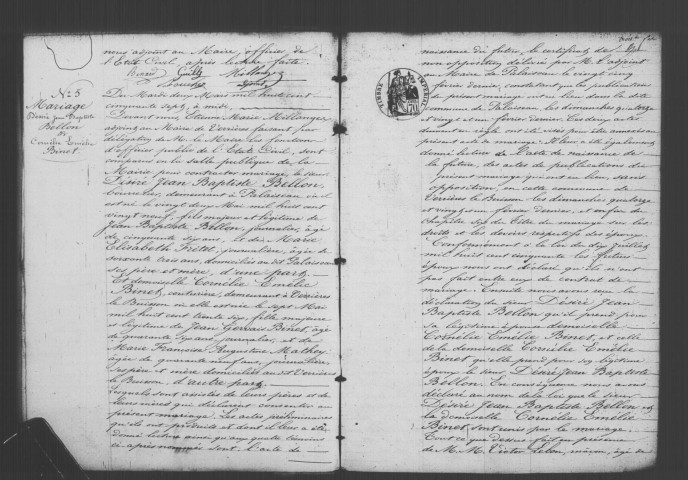 nous adjoint au Maire, officier de
l'Etat Civil, après lecture faite.
Millanger
N° 5
Mariage
Désiré Jean Baptiste
Bellon
&
Cornélie Emélie
Binet
Du Mardi deux Mars mil huit cent
cinquante sept, à midi,
Devant nous Etienne Marie Millanger
adjoint au Maire de Verrières faisant par
délégation de M. le Maire les fonctions
d'officier public de l'Etat Civil, sont
comparus en la salle publique de la
Mairie pour contracter mariage, le sieur
Désiré Jean Baptiste Bellon,
demeurant à Palaiseau où il
est né le vingt deux Mai mil huit cent
vingt neuf, fils majeur et légitime de
Jean Baptiste Bellon, journalier, âgé
de cinquante six ans, et de Marie
Elisabeth journalière, âgée de
soixante trois ans, domiciliés au dit Palaiseau
ses père et mère, d'une part.
Et demoiselle Cornélie Emélie
Binet, couturière, demeurant à Verrières
le Buisson où elle est née le sept Mai
mil huit cent trente six, fille majeure
et légitime de Jean Gervais Binet, âgé
de quarante six ans, journalier, et de
Marie Françoise Augustine Malhoy
âgée de quarante neuf ans, journalière
ses père et mère domiciliés au dit Verrières
le Buisson, d'autre part.
Lesquels sont assistés de leurs pères et de
leurs mères qui déclarent consentir au
présent mariage. Les actes préliminaires
qu'ils ont produits et dont il leur a été
donné lecture ainsi qu'aux quatre témoins
ci-après nommés sont: L'acte de
TIMBRE IMPÉRIAL
naissance du futur, le certificat de
non opposition délivré par M. l'adjoint
Maire de Palaiseau le vingt cinq
février dernier, constatant que les publications
du présent mariage ont eu lieu dans la dite
commune de Palaiseau les dimanches quatorze
et vingt et un février dernier. Les deux actes
demeurent en règle ont été visés pour être annexés au
présent acte de mariage. Il leur a été également
donné lecture de l'acte de naissance de
la future, des actes de publications du
présent mariage qui ont eu lieu, sans
opposition, en cette commune de
Verrières le Buisson les dimanches quatorze
et vingt et un février dernier, et enfin du
chapitre six du titre du mariage sur les
droits et les devoirs respectifs des époux.
Conformément à la loi du dix juillet
mil huit cent cinquante les futurs
époux nous ont déclaré qu'ils n'ont
pas fait entre eux de contrat de
mariage. Ensuite nous avons reçu la
déclaration du sieur Désiré Jean
Baptiste Bellon qu'il prend pour
sa légitime épouse demoiselle
Cornélie Emélie Binet et celle
de la demoiselle Cornélie Emélie
Binet qu'elle prend pour légitime
époux le sieur Désiré Jean Baptiste
Bellon. En conséquence nous avons
déclaré au nom de la loi que le sieur
Désiré Jean Baptiste Bellon et
la demoiselle Cornélie Emélie
Binet, sont unis par le mariage.
Tout ce que dessus a été fait en présence
de M. M. Victor Lelou, maçon, âgé de